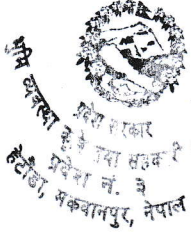 भूमि व्यवस्था
प्रदेश सरकार
कृषि तथा सहकारी
प्रदेश नं. ३
हेटौंडा, मकवानपुर, नेपाल